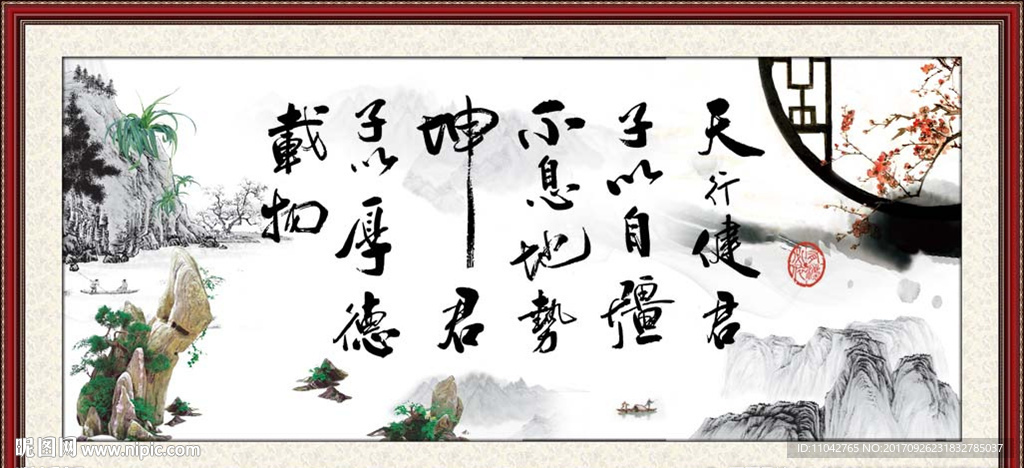 天行健君
子以自彊
不息地勢
坤君
子以厚德
載物
昵图网 www.nipic.com
ID:11042765 NO:20170926231832785037